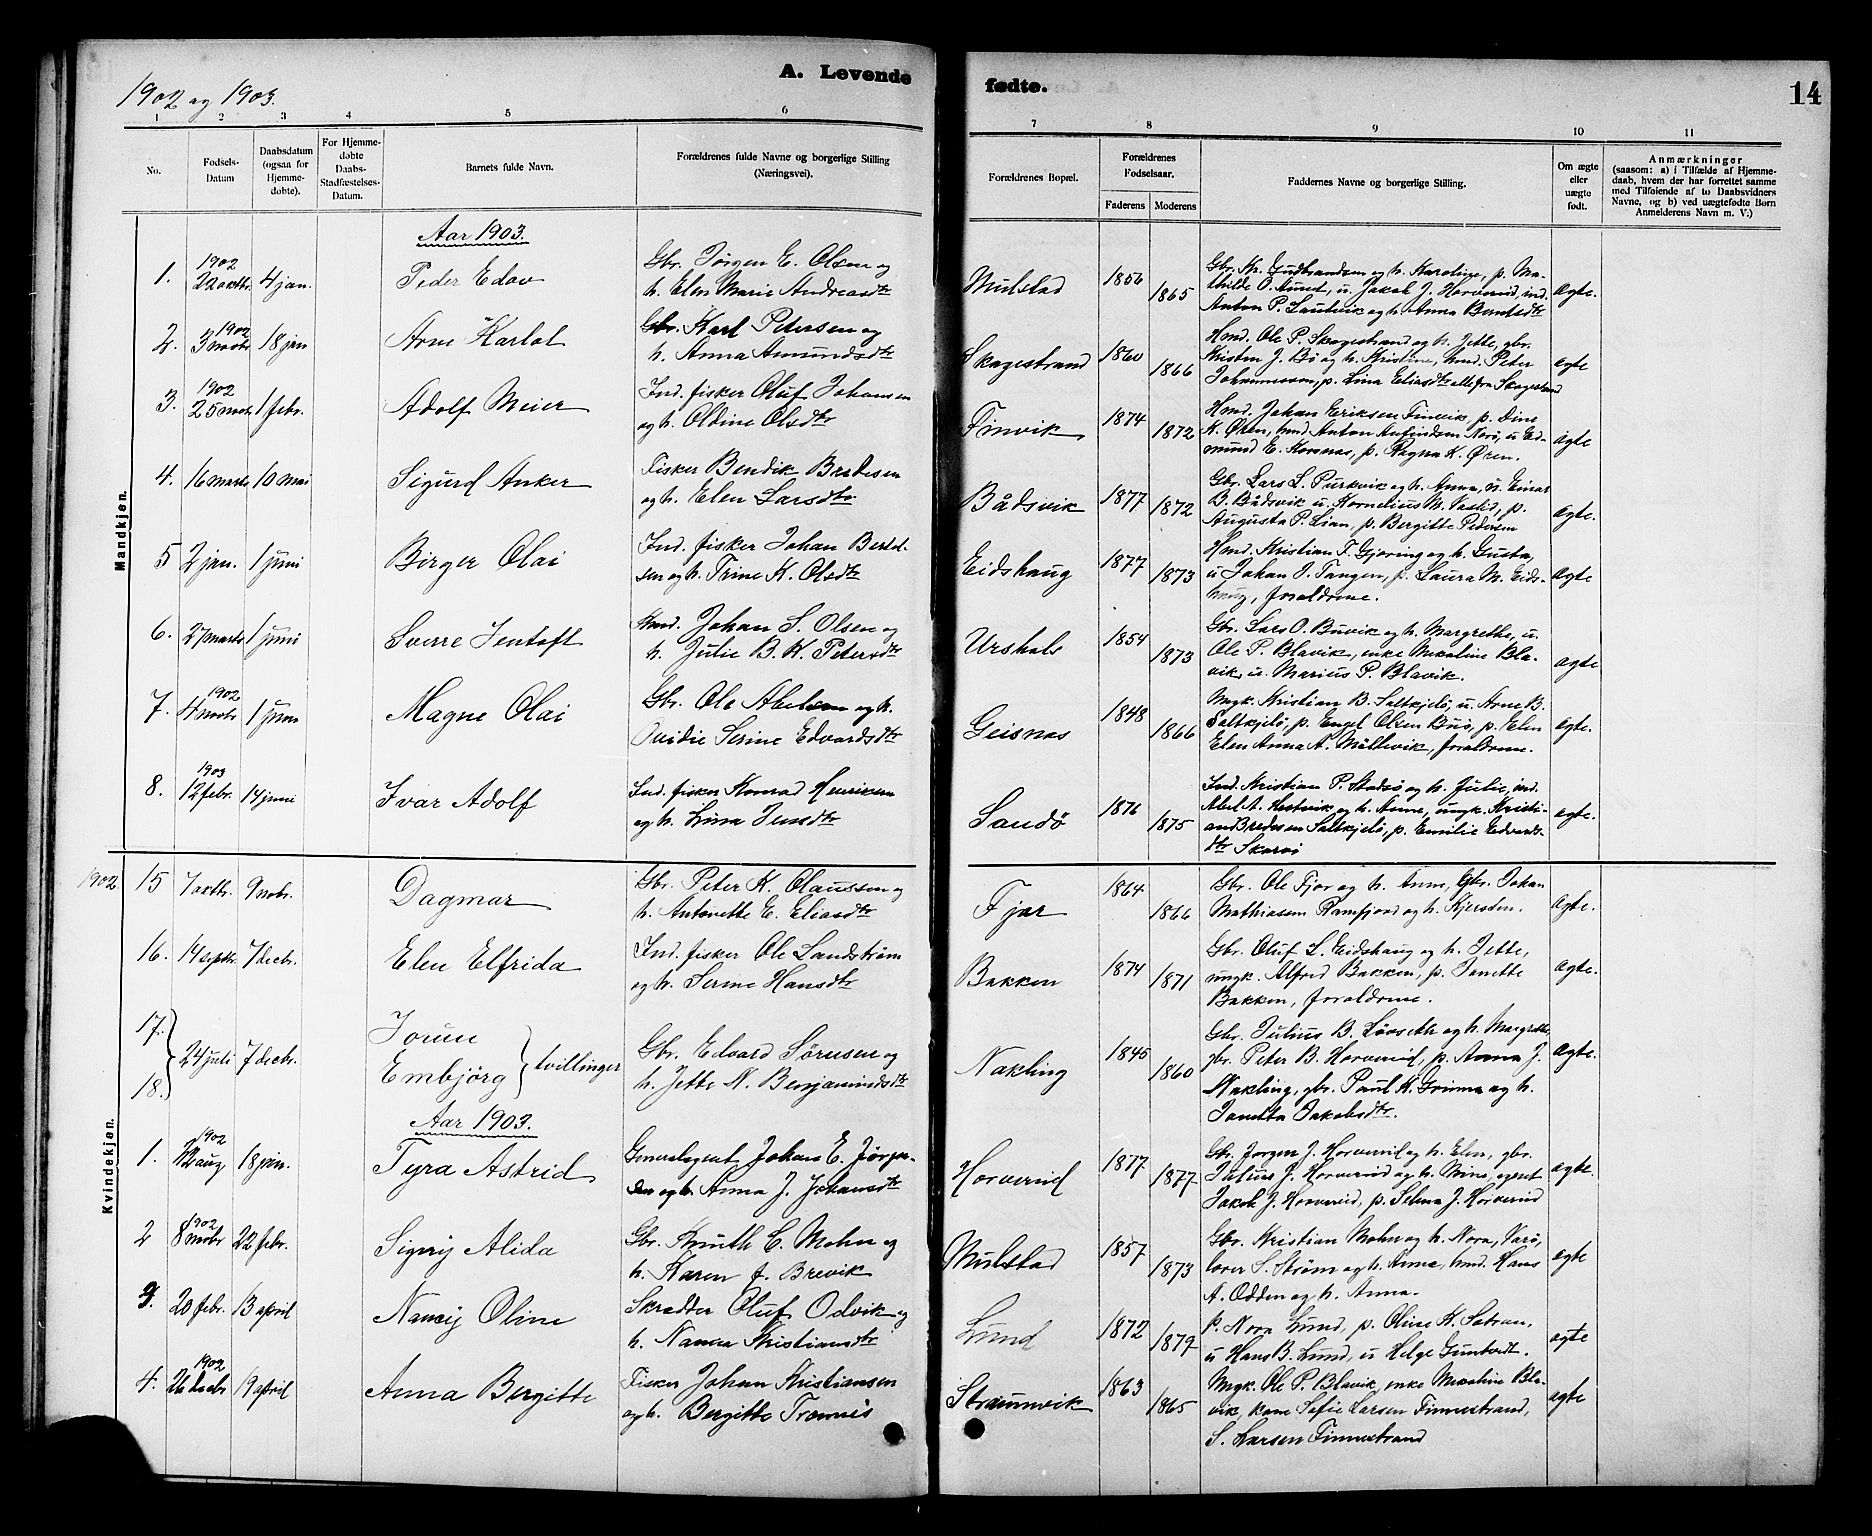 A. Levende
fødte.
14
1902 og 1903.
1 2 3 4 5 6 7 8 9 10 11
No.
Fødsels-
Datum
Daabsdatum
(ogsaa for
Hjemme-
døbte).
For Hjemme-
døbte
Daabs-
Stadfæstelses-
Datum.
Barnets fulde Navn.
Forældrenes fulde Navne og borgerlige Stilling
(Næringsvei).
Forældrenes Bopæl.
Forældrenes
Fødselsaar.
Faderens
Moderens
Faddernes Navne og borgerlige Stilling.
Om ægte
eller
uægte
født.
Anmærkninger
(saasom: a) i Tilfælde af Hjemme-
daab, hvem der har forrettet samme
med Tilføiende af to Daabsvidners
Navne, og b) ved uægtefødte Børn
Anmelderens Navn m. V.)
Mandkjen.
Aar 1903.
1. 1902 22 oktbr. 4 jan. Peder Edav
Gbr. Jørgen E. Olsen og
h. Elen Marie Andreasdtr
Mulstad 1856 1865
Gbr. Kr. Gudbrandsen og h. Karoline, p. Ma-
thilde O. Aund, u. Jakob J. Horverid, ind.
Anton P. Lautvik og h. Anna Berntsdtr
ægte.
2. 1902 3 novbr 18 jan Arne Karlot
Gbr. Karl Petersen og
h. Anna Amundsdtr
Skagestrand 1860 1866
Hmd. Ole P. Skagestrand og h. Jette, gbr.
Kristen J. Bø og h. Kristine, hmd. Peter
Johannessen, p. Lina Eliasdtr alle fra Skagestrand
ægte
3. 1902 25 novbr 1 febr. Adolf Meier
Ind. fisker Oluf Johansen
og h. Oldine Olsdtr
Finvik 1874 1872
Hmd. Johan Eriksen Finvik, p. Dine
K. Øren, hmd Anton Antindsen Norø, u. Ed-
mund E. Hornnas, p. Ragna K. Øren.
ægte
4. 16 marts 10 mai Sigurd Anker
Fisker Bendik Bredesen
og h. Elen Larsdtr
Bådsvik 1877 1872
Gbr. Lars L. Purkvik og h. Anna, u. Einar
B. Bådsvik u. Kornelius M. Vaslid, p.
Augusta P. Lian, p. Bergitte Pedersen
ægte.
5 2 jan. 1 juni Birger Olai
Ind. fisker Johan Bertel-
sen og h. Trine K. Olsdtr
Eidshaug 1877 1873
Hmd. Kristian F. Gjøring og h. Gusta,
u Johan J. Tangen, p. Laura M. Eids-
haug, forældrene.
ægte
6. 27 marts 1 juni Sverre Jentoft
Hmd. Johan S. Olsen og
h. Julie B. K. Petersdtr
Urshals 1854 1873
Gbr. Lars O. Buvik og h. Margrethe, u.
Ole P. Blavik, enke Mekaline Bla-
vik, u. Marius P. Blavik.
ægte
7. 1902 4 novbr 1 juni Magne Olai
Gbr. Ole Abelsen og h.
Ovidie Serine Edvardsdtr
Geisnæs 1848 1866
Ungk. Kristian B. Saltkjelø, u. Arne B.
Saltkjelø, p. Engel Olsen Buø, p. Elen
Elen Anna A. Möllevik, forældrene.
ægte.
8. 1903 12 febr. 14 juni Ivar Adolf
Ind. fisker Konrad Henriksen
og h. Lina Jensdtr
Sandø 1876 1875
Ind. Kristian P. Stadsø og h. Julie, ind.
Abel A. Hestvik og h. Anne, ungk. Kristi-
an Bredesen Saltkjelø, p. Emilie Edvards-
dtr Skarøi
ægte.
Kvindekjen.
1902. 15 7 oktbr. 9 nobr. Dagmar
Gbr. Peter K. Olaussen og
h. Antonette E. Eliasdtr
Fjær 1864 1866
Gbr. Ole Fjær og h. Anne, Gbr. Johan
Mathiasen Ramfjord og h. Kjersten.
ægte.
16. 14 septbr. 7 decbr. Elen Elfrida
Ind. fisker Ole Landstrøm
og h. Serine Hansdtr
Bakken 1874 1871
Gbr. Oluf L. Eidshaug og h. Jette,
ungk. Alfred Bakken, p. Janette
Bakken, forældrene.
ægte.
17. 18. 24 juli 7 decbr. Jorun
Embjörg tvillinger
Gbr. Edvard Sörensen og
h. Jette N. Benjaminsdtr
Nakling 1845 1860
Gbr. Julius B. Lövseth og h. Margrethe,
gbr. Peter B. Horverid, p. Anna J.
Nakling, gbr. Paul K. Grinna og h.
Janetta Jakobsdtr.
ægte.
Aar 1903.
1. 1902 22 aug. 18 jan. Tyra Astrid
Generalagent Johan E. Jörgen-
sen og h. Anna J. Johansdtr
Horverid 1877 1877
Gbr. Jörgen J. Horverid og h. Elen, gbr.
Julius J. Horverid og h. Mine, agent
Jakob J. Horverid, p. Selma J. Horverid
ægte.
2 1902 8 novbr 22 febr. Signy Alida
Gbr. Knuth C. Mohn og
h. Karen f. Brevik
Mulstad 1857 1873
Gbr. Kristian Mohn og h. Nora, Værø,
lærer S. Strøm og h. Anna, hmd. Hans
A. Odden og h. Anna.
ægte
3. 20 febr. 13 april Nancy Oline
Skrædder Oluf Odvik og
h. Nanna Kristiansdtr
Lund 1872 1879
p. Nora Lund, p. Oline K. Sætran,
u Hans B. Lund, u Helge Gunbrdt.
ægte
4. 1902 26 decbr 19 april Anna Bergitte
Fisker Johan Kristiansen
og h. Bergitte Tromnes
Straumvik 1863 1865
Ungk. Ole P. Blavik, enke Mekaline Bla-
vik, kone Sofie Larsen Finnestrand,
S. Larsen Finnestrand
ægte